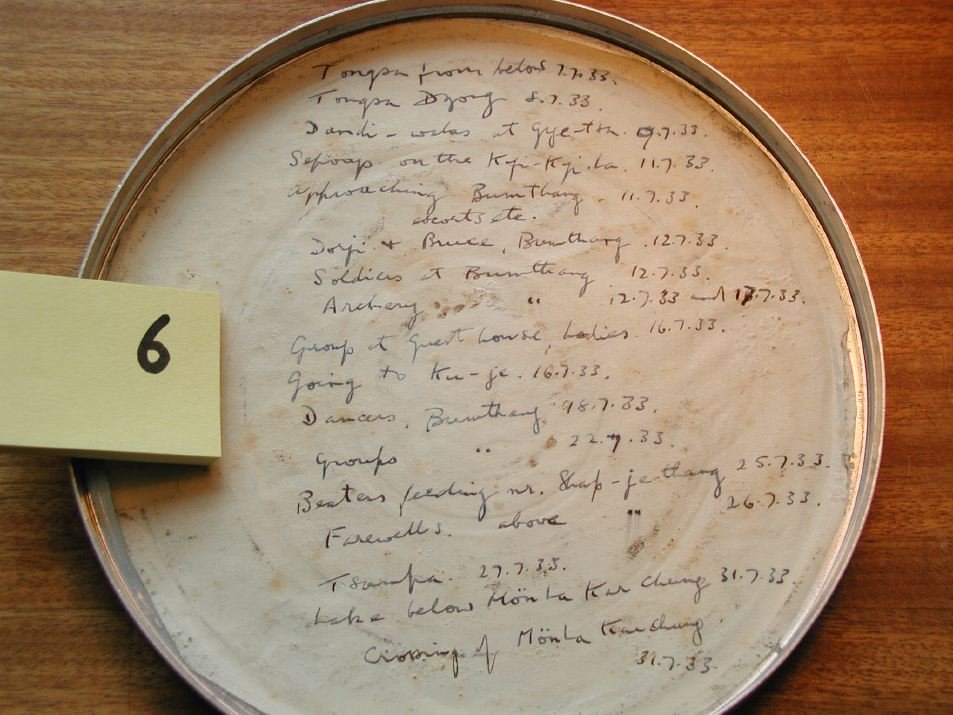 6
Tongsa from below 7.7.33.
Tongsa Dzong 8.7.33.
Dandi-walas at Gye-tsa. 9.7.33.
Sepoys on the Kyi-Kyi La. 11.7.33.
Approaching Bumthang. 11.7.33.
escorts etc.
Dorji + Bruce, Bumthang. 12.7.33.
Soldiers at Bumthang 12.7.33.
Archery " 12.7.33 and 13.7.33.
Group at guest house, ladies. 16.7.33.
Going to Ku-je. 16.7.33.
Dancers, Bumthang 18.7.33.
Groups " 22.7.33.
Beaters feeding nr. Shap-je-thang 25.7.33.
Farewells. above " 26.7.33.
Tsampa. 27.7.33.
Lake below Mönla Kar Chung 31.7.33.
Crossing of Mönla Karchung.
31.7.33.